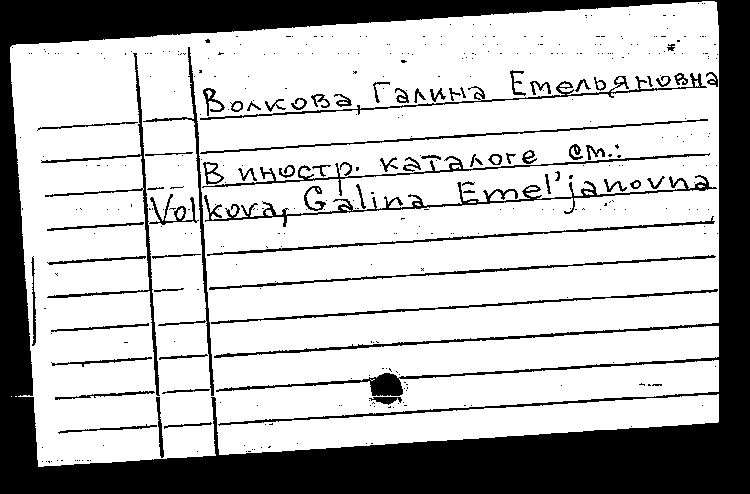 Волкова, Галина Емельяновна
В иностр. каталоге см.:
Volkova, Galina Emel'janovna